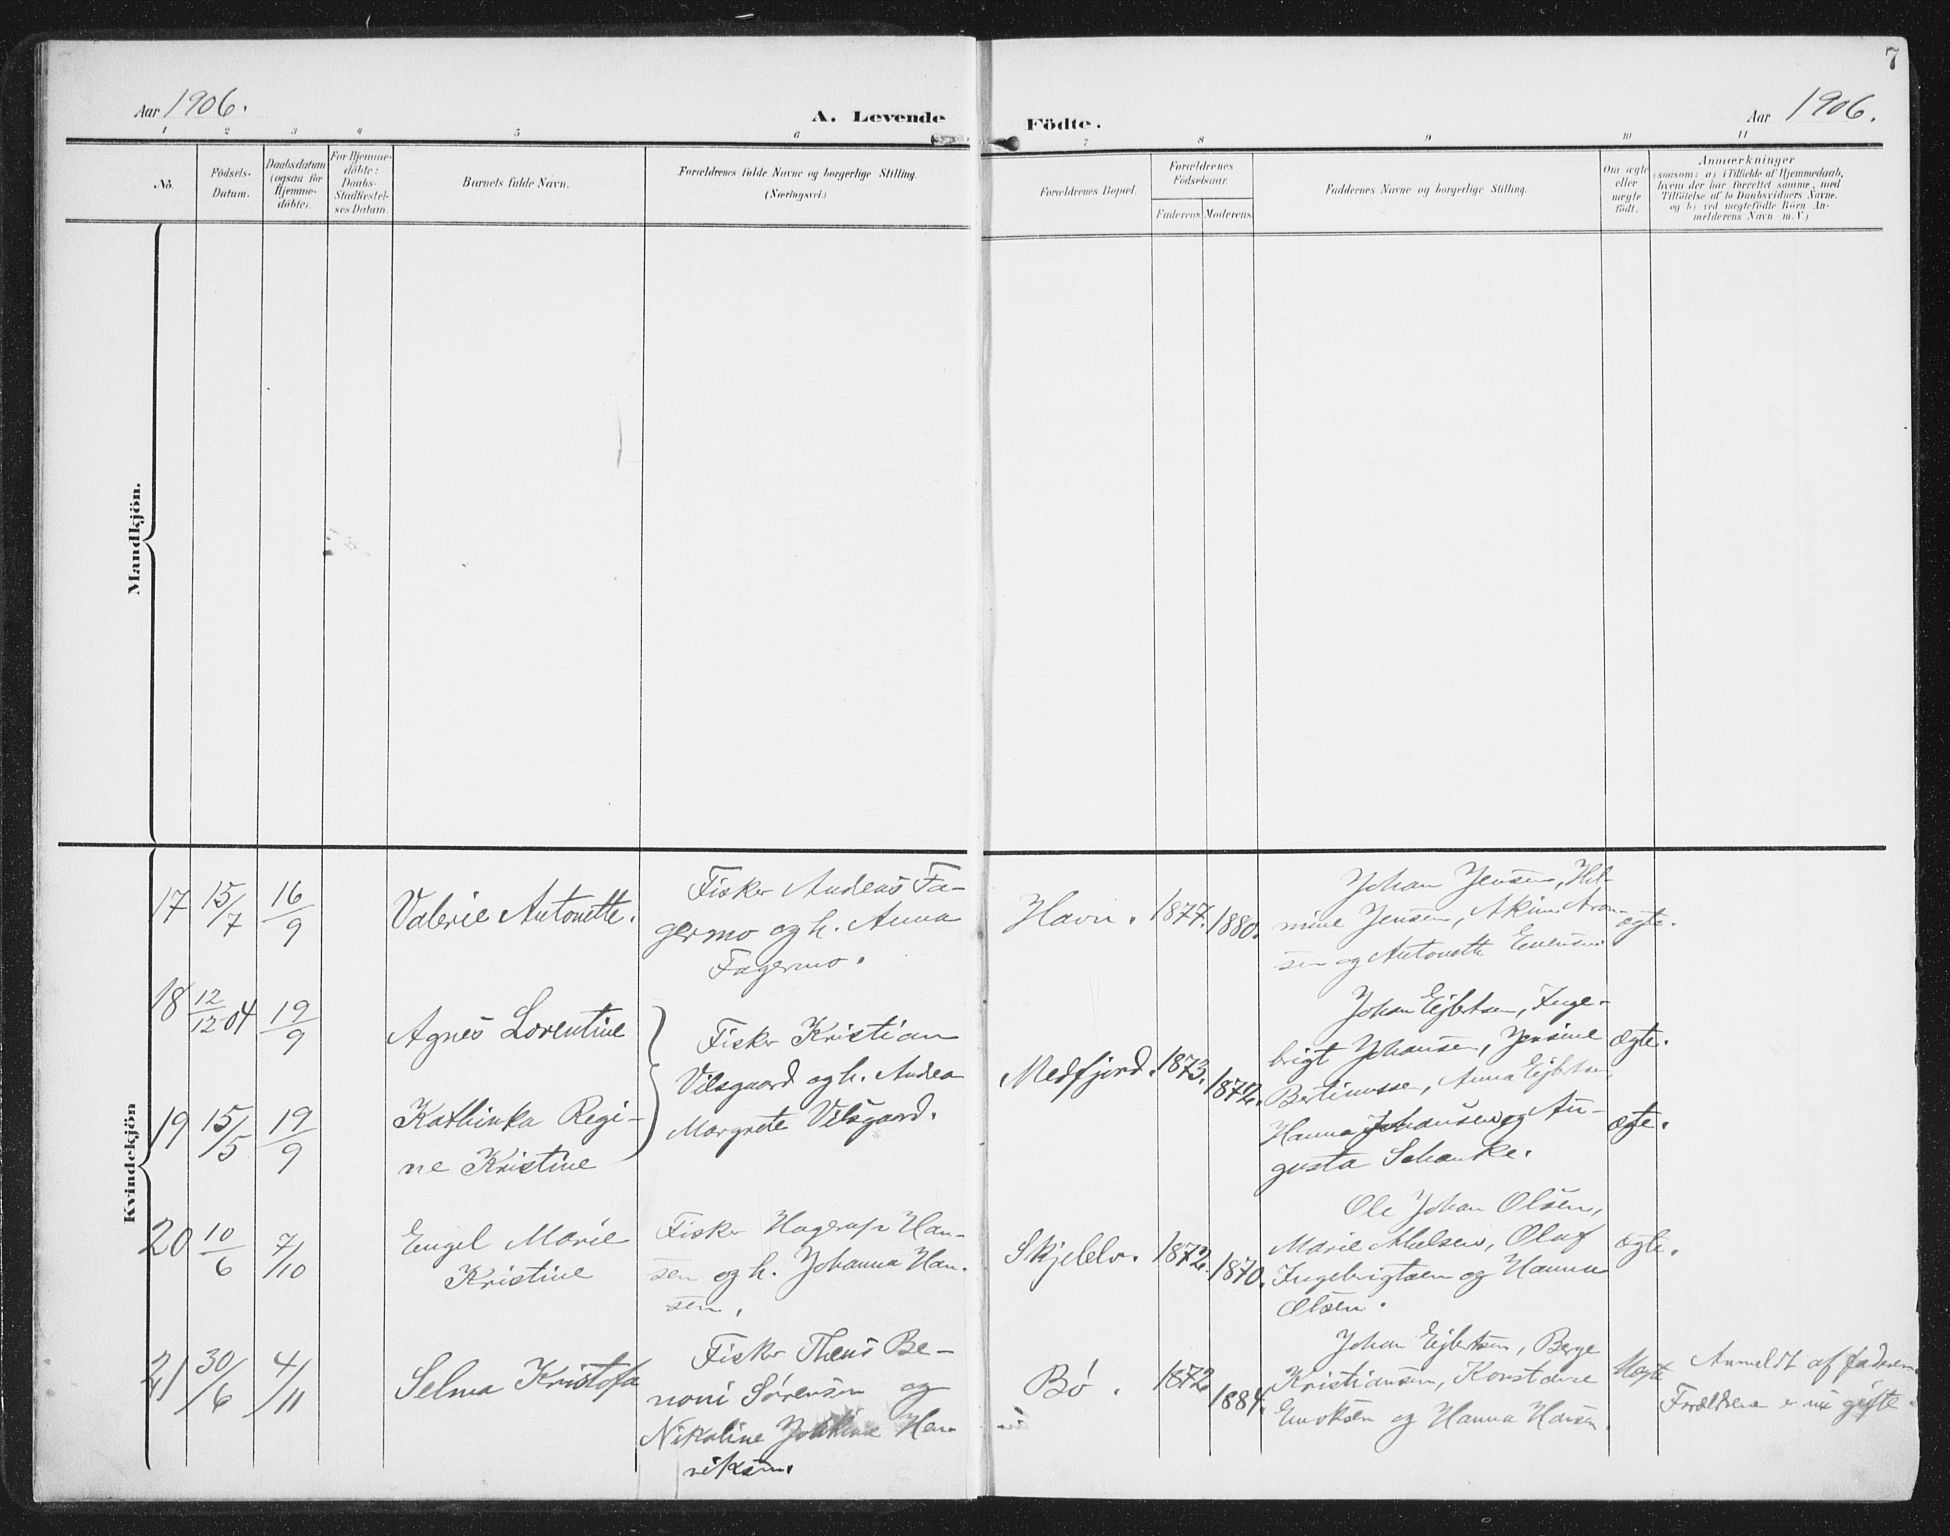 7
Aar 1906.
A. Levende Födte.
Aar 1906.
1 2 3 4 5 6 7 8 9 10 11
No.
Födsels-
Datum.
Daabsdatum
(ogsaa for
Hjemme-
döbte).
For Hjemme-
döbte:
Daabs-
Stadfæstel-
ses Datum.
Barnets fulde Navn.
Forældrenes fulde Navne og borgerlige Stilling.
(Næringsvei.)
Forældrenes Bopæl.
Forældrenes
Födselsaar.
Faderens. Moderens.
Faddernes Navne og borgerlige Stilling.
Om ægte
eller
uægte
födt.
Anmærkninger
(saasom: a) i Tilfælde af Hjemmedaab,
hvem der har forrettet samme, med
Tilföielse af to Daabsvidners Navne,
og b) ved uægtefödte Börn An-
melderens Navn m. V.)
Mandkjön.
Kvindekjön
17 15/7 16/9 Valerie Antonette.
Fisker Andeas Fa-
germo og h. Anna
Fagermo.
Havn. 1877. 1880.
Johan Jensen, Hil-
mine Jensen, Akim Aron-
sen og Antonette Evensen.
ægte.
18 12/12 04 19/9 Agnes Lorentine
Fisker Kristian
Vilsgaard og h. Andea
Margrete Vilsgaard.
Medfjord. 1873. 1872.
Johan Ejbertsen, Inge-
brigt Johansen, Jensine
Bertinussen, Anna Ejbertsen,
Hanna Johansen og Au-
gusta Schanke.
ægte.
19 15/5 19/9 Kathinka Regi-
ne Kristine
ægte.
20 10/6 7/10 Engel Marie
Kristine
Fisker Hagerup Han-
sen og h. Johanna Han-
sen.
Skjelelv. 1872. 1870.
Ole Johan Olsen,
Marie Nielsen, Oluf
Ingebrigtsen og Hanna
Olsen.
ægte.
21 30/6 4/11 Selma Kristofa
Fisker Theus Be-
noni Sørensen og
Nikoline Hen-
riksen.
Bø. 1872 1884.
Johan Ejbertsen, Berge
Kristiansen, Konstanse
Enoksen og Hanna Hansen.
Uægte
Anmeldt af faderen
Forældrene er nu gifte.